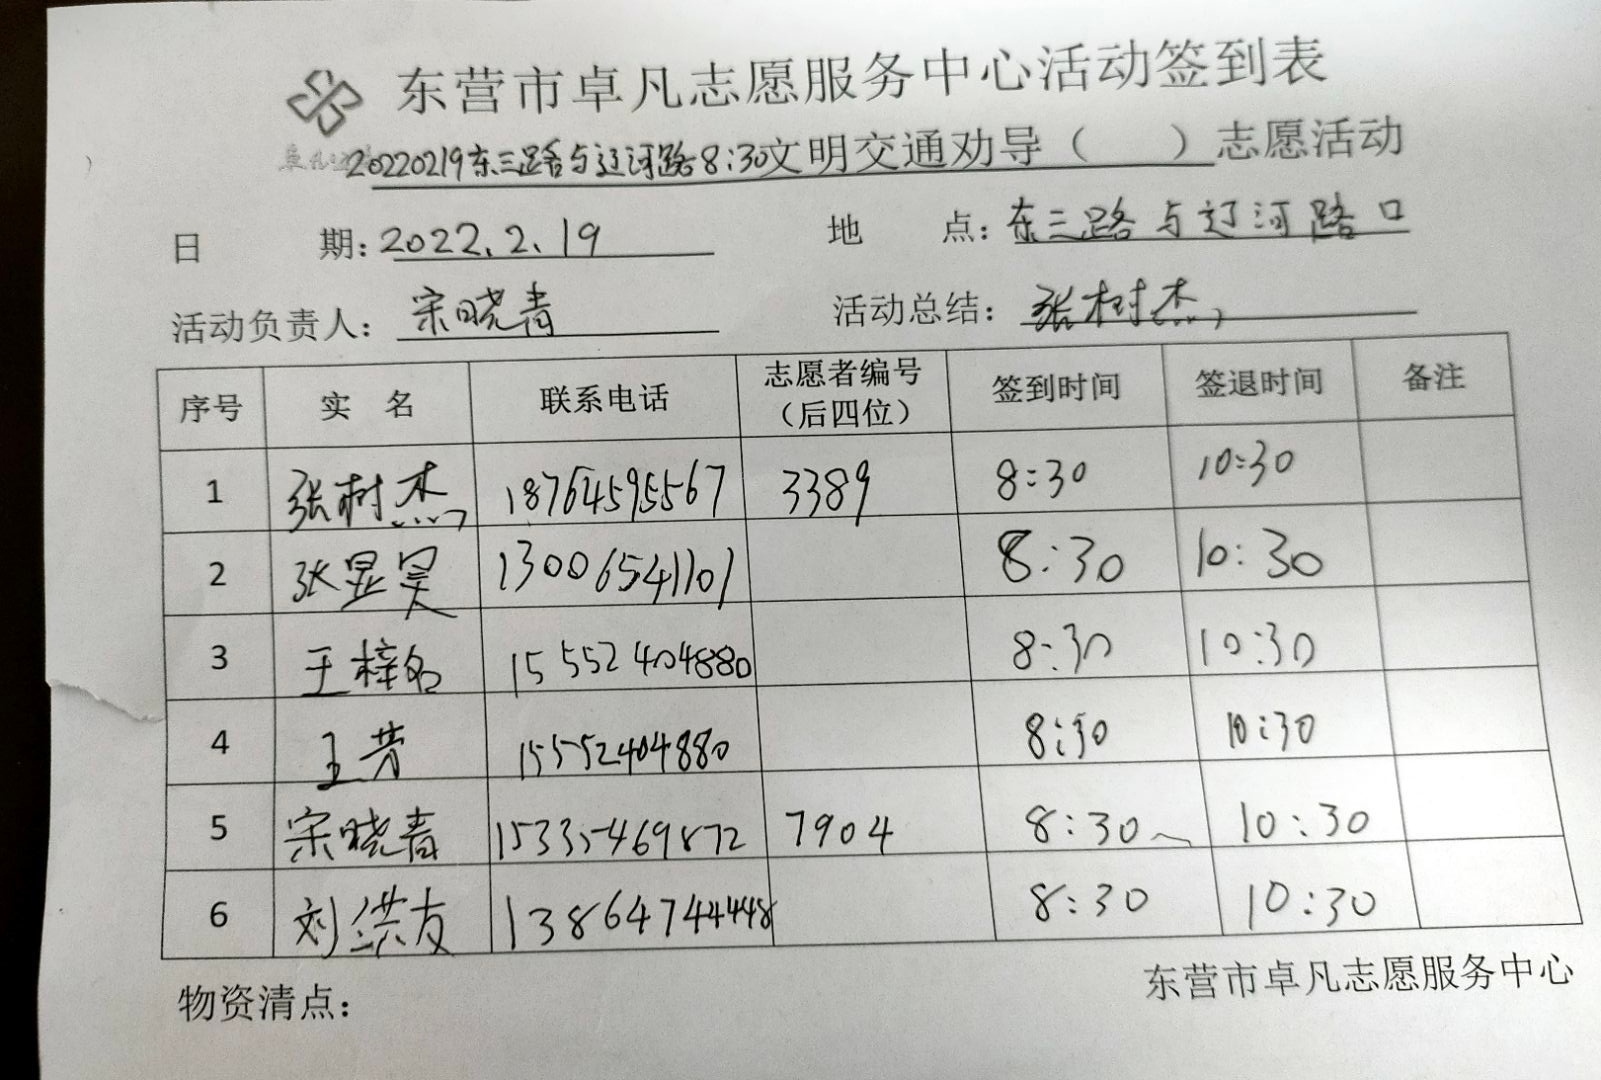 东营市卓凡志愿服务中心活动签到表
20220219东三路与辽河路8:30文明交通劝导（ ）志愿活动
日 期：2022.2.19 地 点：东三路与辽河路口
活动负责人：宋晓青 活动总结：张树杰
序号 实 名 联系电话 志愿者编号（后四位） 签到时间 签退时间 备注
1 张树杰 18764595567 3389 8:30 10:30
2 张显昊 13006541101 8:30 10:30
3 王梓名 15552404880 8:30 10:30
4 王芳 15552404880 8:30 10:30
5 宋晓青 15335469872 7904 8:30 10:30
6 刘洪友 13864744448 8:30 10:30
物资清点： 东营市卓凡志愿服务中心